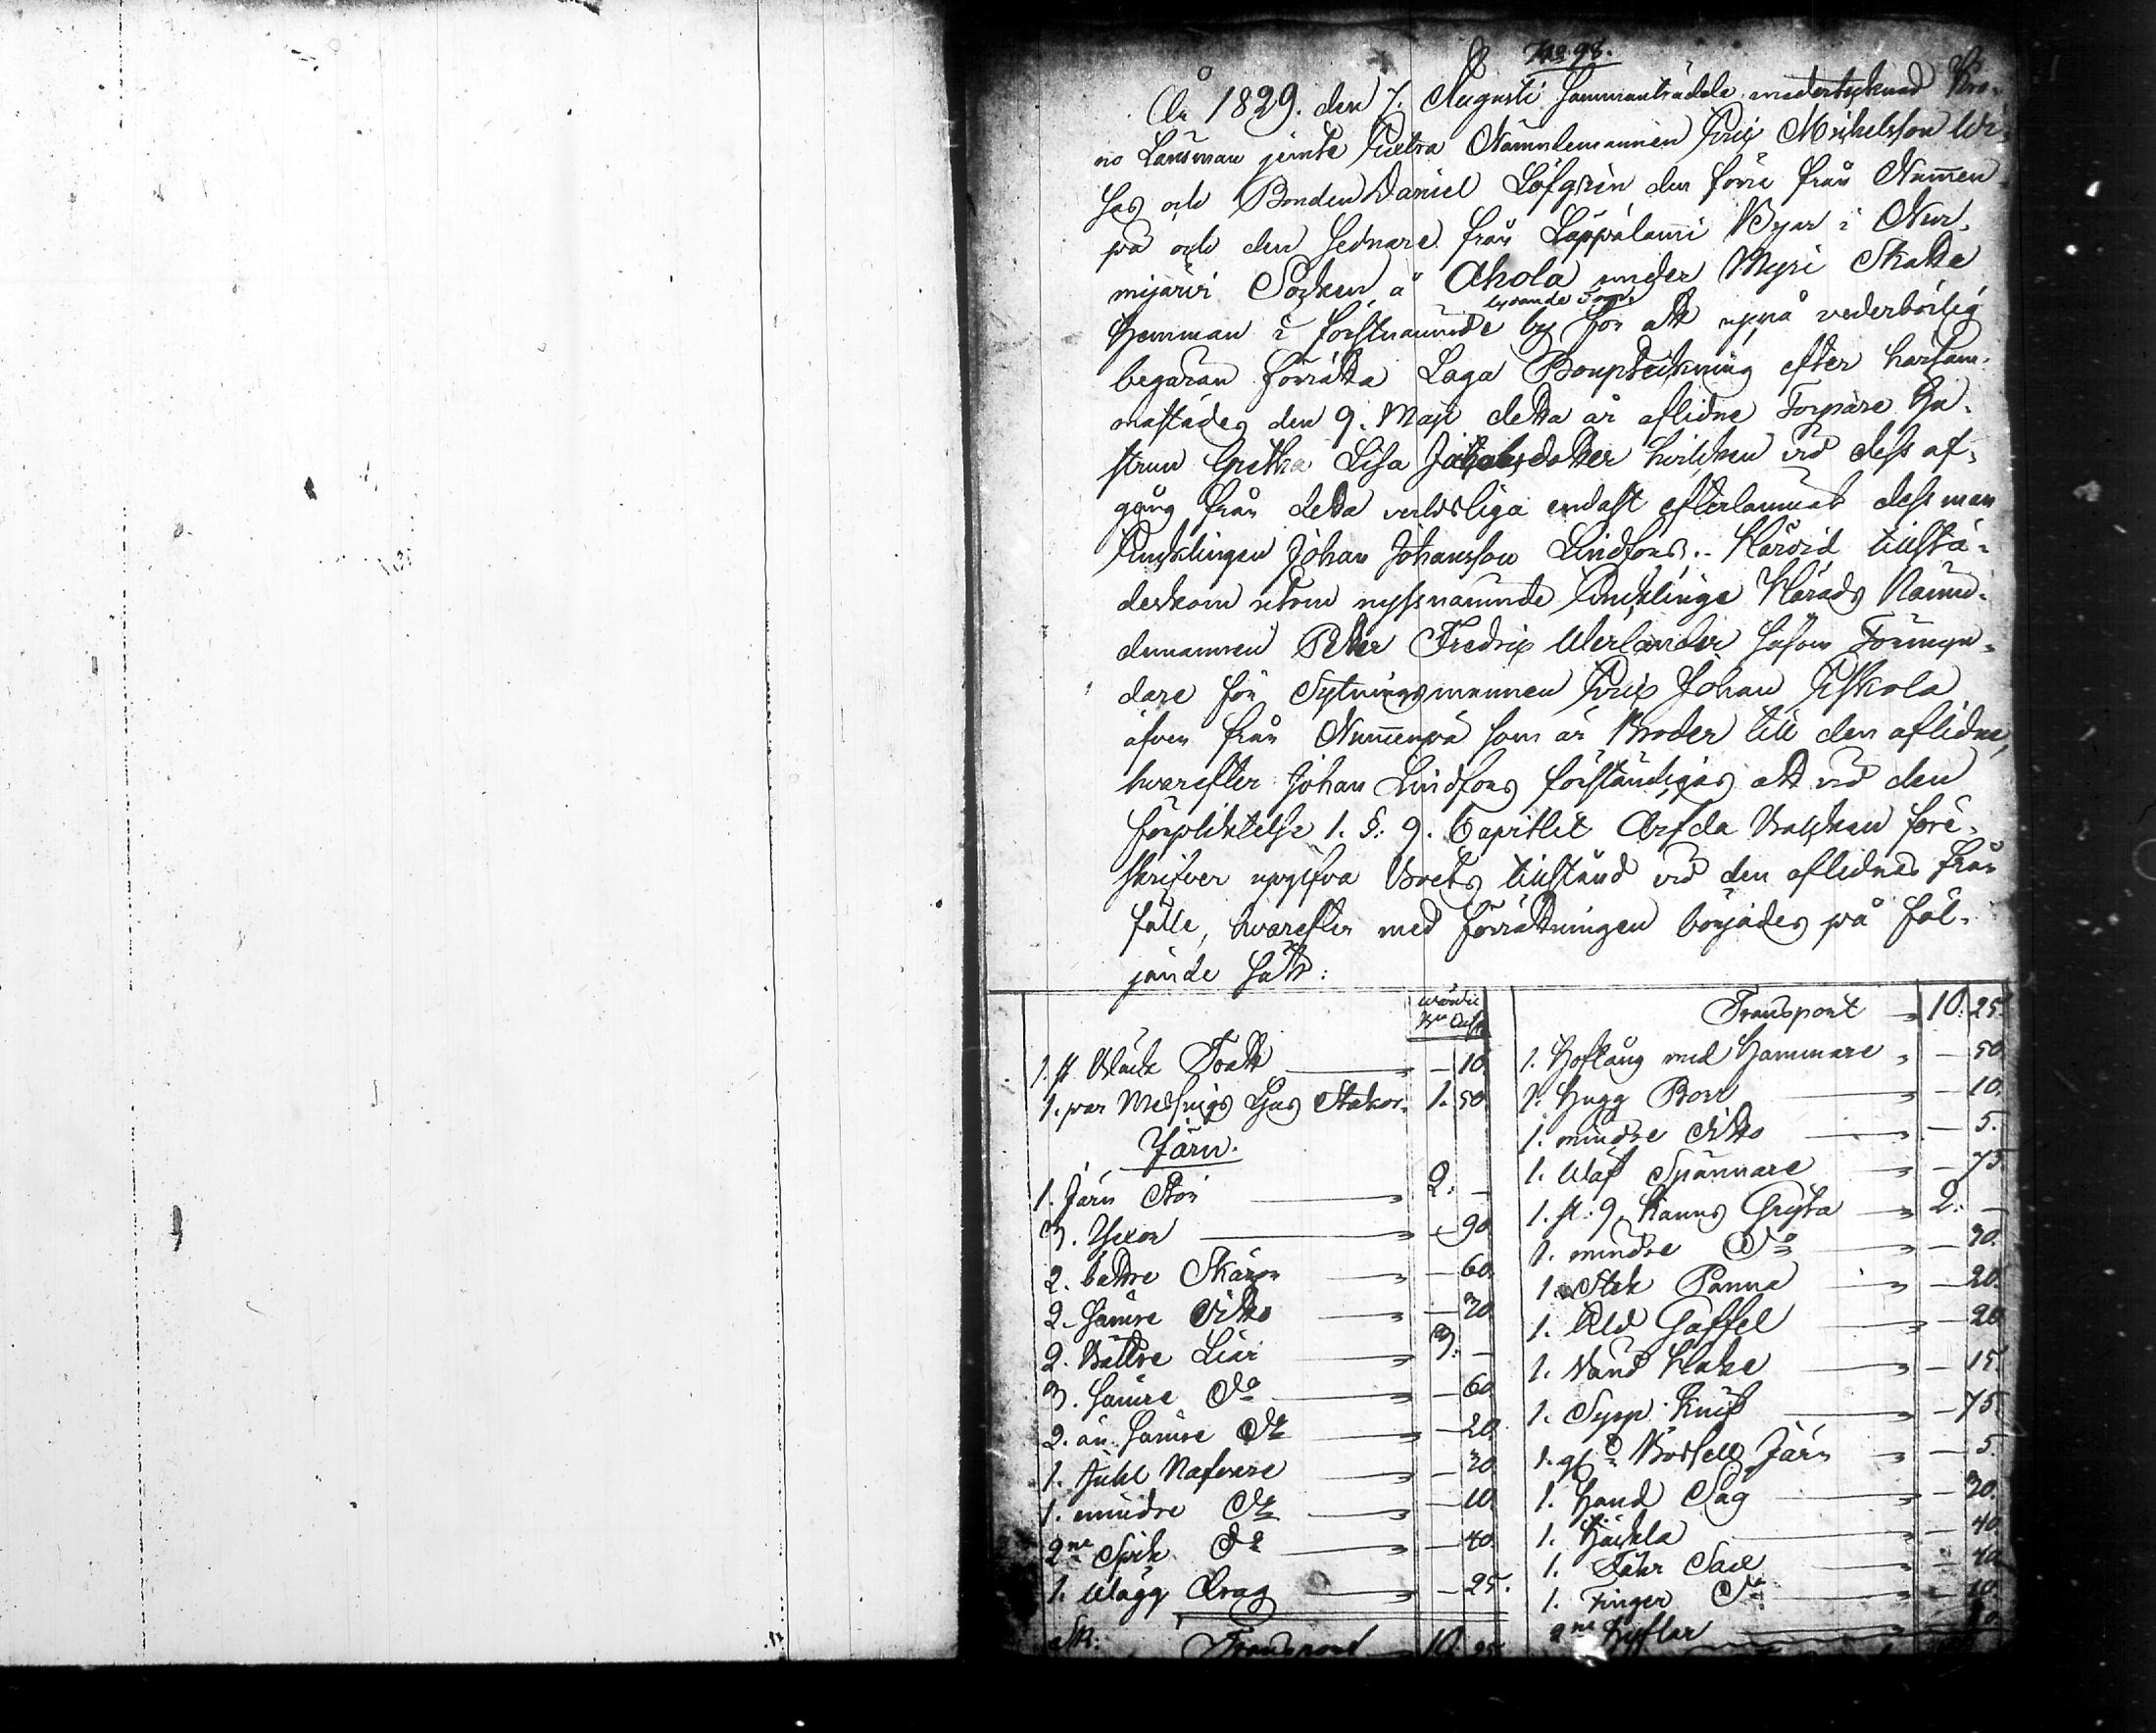 No. 98.
År 1829. den 7. Augusti sammanträdde undertecknad Kro-
no Länsman jemte Extra Nämndemannen Eric Michelsson Wi-
has och Bonden Daniel Löfgrén den förre från Nummen-
pä och den sednare från Läppälami Byar i Nur-
mijärvi Socken å Ahola under Myri Skatte
lydande Torp
Hemman i förstnämnde by för att uppå vederbörlig
begäran förrätta Laga Bouptekning efter härsam-
mastädes den 9. Maji detta år aflidne Torpare Hu-
strun Gretha Lisa Jacobsdotter hvilken vid dess af-
gång från detta verldsliga endast efterlämnat dess man
Enklingen Johan Johansson Lindfors. Härvid tillstä-
deskom utom nyssnämnde Enklinge Härads Nämn-
demannen Petter Fredric Werlander såsom Förmyn-
dare för Sytningsmannen Eric Johan Eskola
äfven från Nummenpä som är Broder till den aflidne,
hvarefter Johan Lindfors förständigas att vid den
förpliktelse 1. §: 9. Capitlet Ärfda Balken före-
skrifver uppgifva Boets tillstånd vid den aflidnes från
fälle, hvarefter med förrättningen börjades på föl-
jande sätt:
Wärde
1. st Täck — 10.
1. par Messings Ljus Stakor. 1. 50.
Järn.
1. Järn Stör 2. —
3. Yxor — 90.
2. bättre Skäror — 60.
2. sämre Ditto — 30
2. Bättre Liar 3. —
3. sämre Do — 60
2. än sämre Do — 20
1. Juhl Nafvare — 30
1. mindre Do — 10
2ne Spik Do — 40
1. Wägg Drag — 25.
Transport 10. 25.
Transport 10. 25.
1. Hoftång med Hammare — 50
1. Hugg Borr — 10.
1. mindre Ditto — 5.
1. Wäf Spännare — 75.
1. st: 9. Kanns Gryta 2. —
1. mindre Do — 30.
1. Stek Panna — 20.
1. Eld Gaffel — 20
1. Wänd Hake — 15.
1. Sypp Knif — 75.
1. gl: Bössell Järn — 5.
1. Hand Såg — 30.
1. Häckla — 40
1. Fåhr Sax — 40
1. Finger Do — 10.
2ne Hyflar